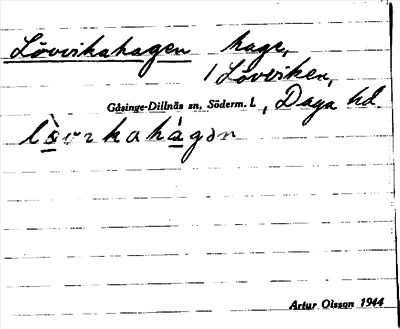 Lövvikahagen hage,
/ Lövviken,
Gåsinge-Dillnäs sn, Söderm. L, Daga hd.
lò̱vıkahá̱gən
Artur Olsson 1944